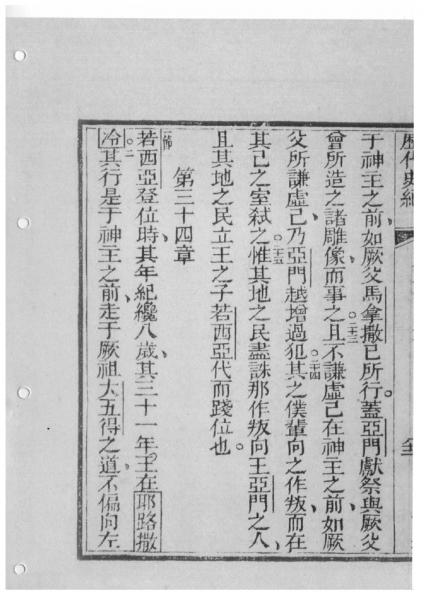 歷代史紀
于神主之前、如厥父馬拿撒已所行。蓋亞門獻祭與厥父
曾所造之諸雕像、而事之。二十三且不謙虛己在神主之前、如厥
父所謙虛己、乃亞門越增過犯。二十四其之僕輩向之作叛、而在
其己之室弒之。二十五惟其地之民盡誅那作叛向王亞門之人、
且其地之民立王之子若西亞代而踐位也。
第三十四章
一節若西亞登位時、其年紀纔八歲、其三十一年王在耶路撒
冷。二其行是于神主之前、走于厥祖大五得之道、不偏向左